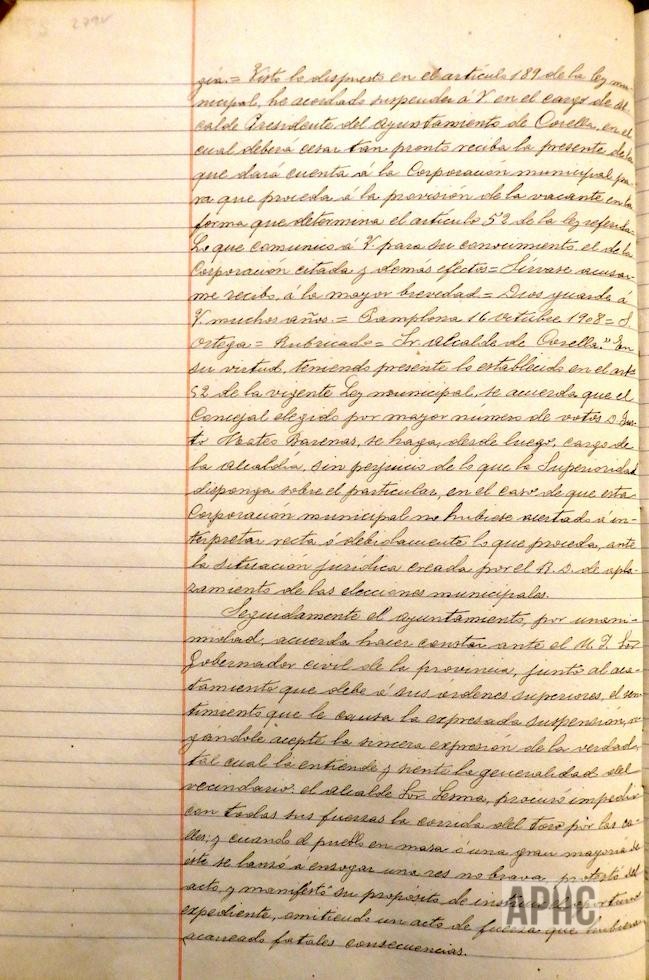 279v
gía.= Visto lo dispuesto en el artículo 189 de la ley mu-
nicipal, he acordado suspender á V. en el cargo de Al
calde Presidente del Ayuntamiento de Corella, en el
cual deberá cesar tan pronto reciba la presente, de la
que dará cuenta á la Corporación municipal pa-
ra que proceda á la provisión de la vacante en la
forma que determina el artículo 52 de la ley referida=
Lo que comunico á V. para su conocimiento, el de la
Corporación citada y demás efectos= Sírvase acusar-
me recibo, á la mayor brevedad= Dios guarde á
V. muchos años.= Pamplona 16 Octubre 1908= S.
Ortega= Rubricado= Sr Alcalde de Corella." En
su virtud, teniendo presente lo establecido en el arto
52 de la vigente Ley municipal, se acuerda que el
Concejal elegido por mayor número de votos D. Jus-
to Mateo Barenas, se haga, desde luego, cargo de
la alcaldía, sin perjuicio de lo que la Superioridad
disponga sobre el particular, en el caso de que esta
Corporación municipal no hubiese acertado á in-
terpretar recta ó debidamente lo que proceda, ante
la situación jurídica creada por el R. D. de apla-
zamiento de las elecciones municipales.
Seguidamente el Ayuntamiento, por unani-
midad, acuerda hacer constar ante el M. I. Sor
Gobernador civil de la provincia, junto al aca-
tamiento que debe á sus órdenes superiores, el sen-
timiento que le causa la expresada suspensión, ro
gándole acepte la sincera expresión de la verdad,
tal cual la entiende y siente la generalidad del
vecindario: el alcalde Sor Sesma, procuró impedir
con todas sus fuerzas la corrida del toro por las ca-
lles; y cuando el pueblo en masa ó una gran mayoría de
este se lanzó a ensogar una res no brava, protestó del
acto, y manifestó su propósito de instruir el oportuno
expediente, omitiendo un acto de fuerza que hubiera
acarreado fatales consecuencias.
APHC